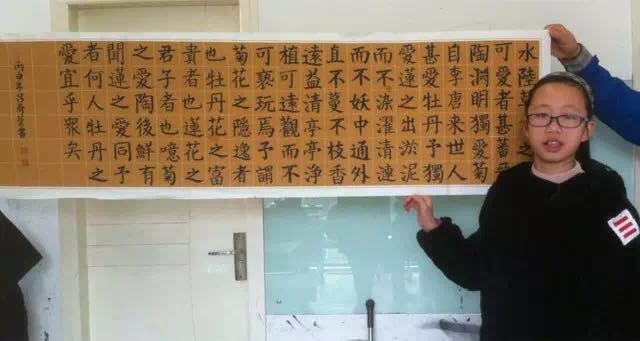 水陸
可愛者甚蕃
陶淵明獨愛菊
自李唐来世人
甚愛牡丹予獨
愛蓮之出淤泥
而不染濯清漣
而不妖中通外
直不蔓不枝香
遠益清亭亭净
植可遠觀而不
可褻玩焉予謂
菊花之隱逸者
也牡丹花之富
貴者也蓮花之
君子者也噫菊
之愛陶後鮮有
聞蓮之愛同予
者何人牡丹之
愛宜乎眾矣
丙申年書